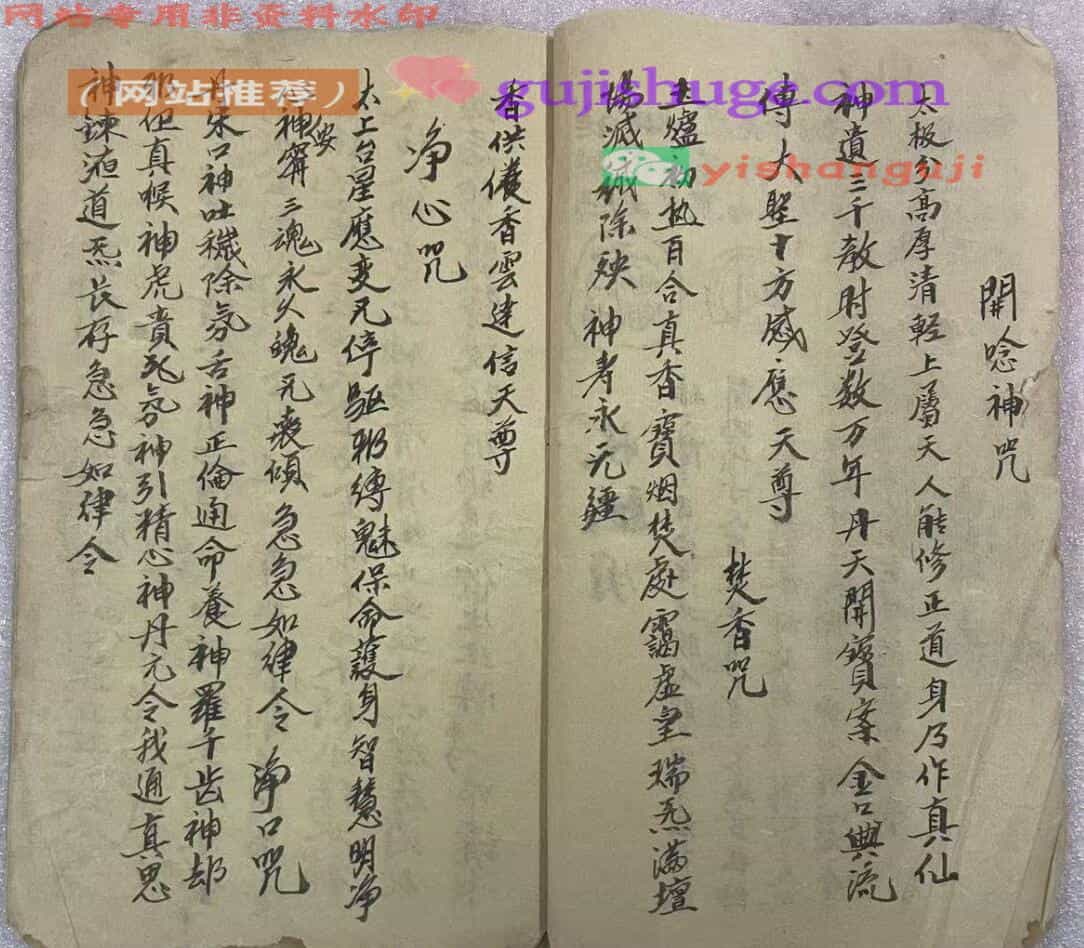 网站专用非资料水印
（网站推荐）
gujishuge.com
yishanguji
開唸神咒
太極分高厚清輕上屬天人能修正道身乃作真仙
神遺三千教时登数万年丹天開寳案金口與流
傅大聖十方感應天尊
焚香咒
王爐初热百合真香寳烟焚處靄虚皇瑞炁滿壇
塲滅除殃神寿永无疆
香供儀香雲達信天尊
净心咒
太上台星應变无停驅邪縛魅保命護身智慧明净
神安寧三魂永久魄无喪傾急急如律令 净口咒
丹朱口神吐穢除氛舌神正倫通命養神羅千齿神却
邪但真喉神虎賁死氛神引精心神丹元令我通真思
神諫液道炁长存急急如律令